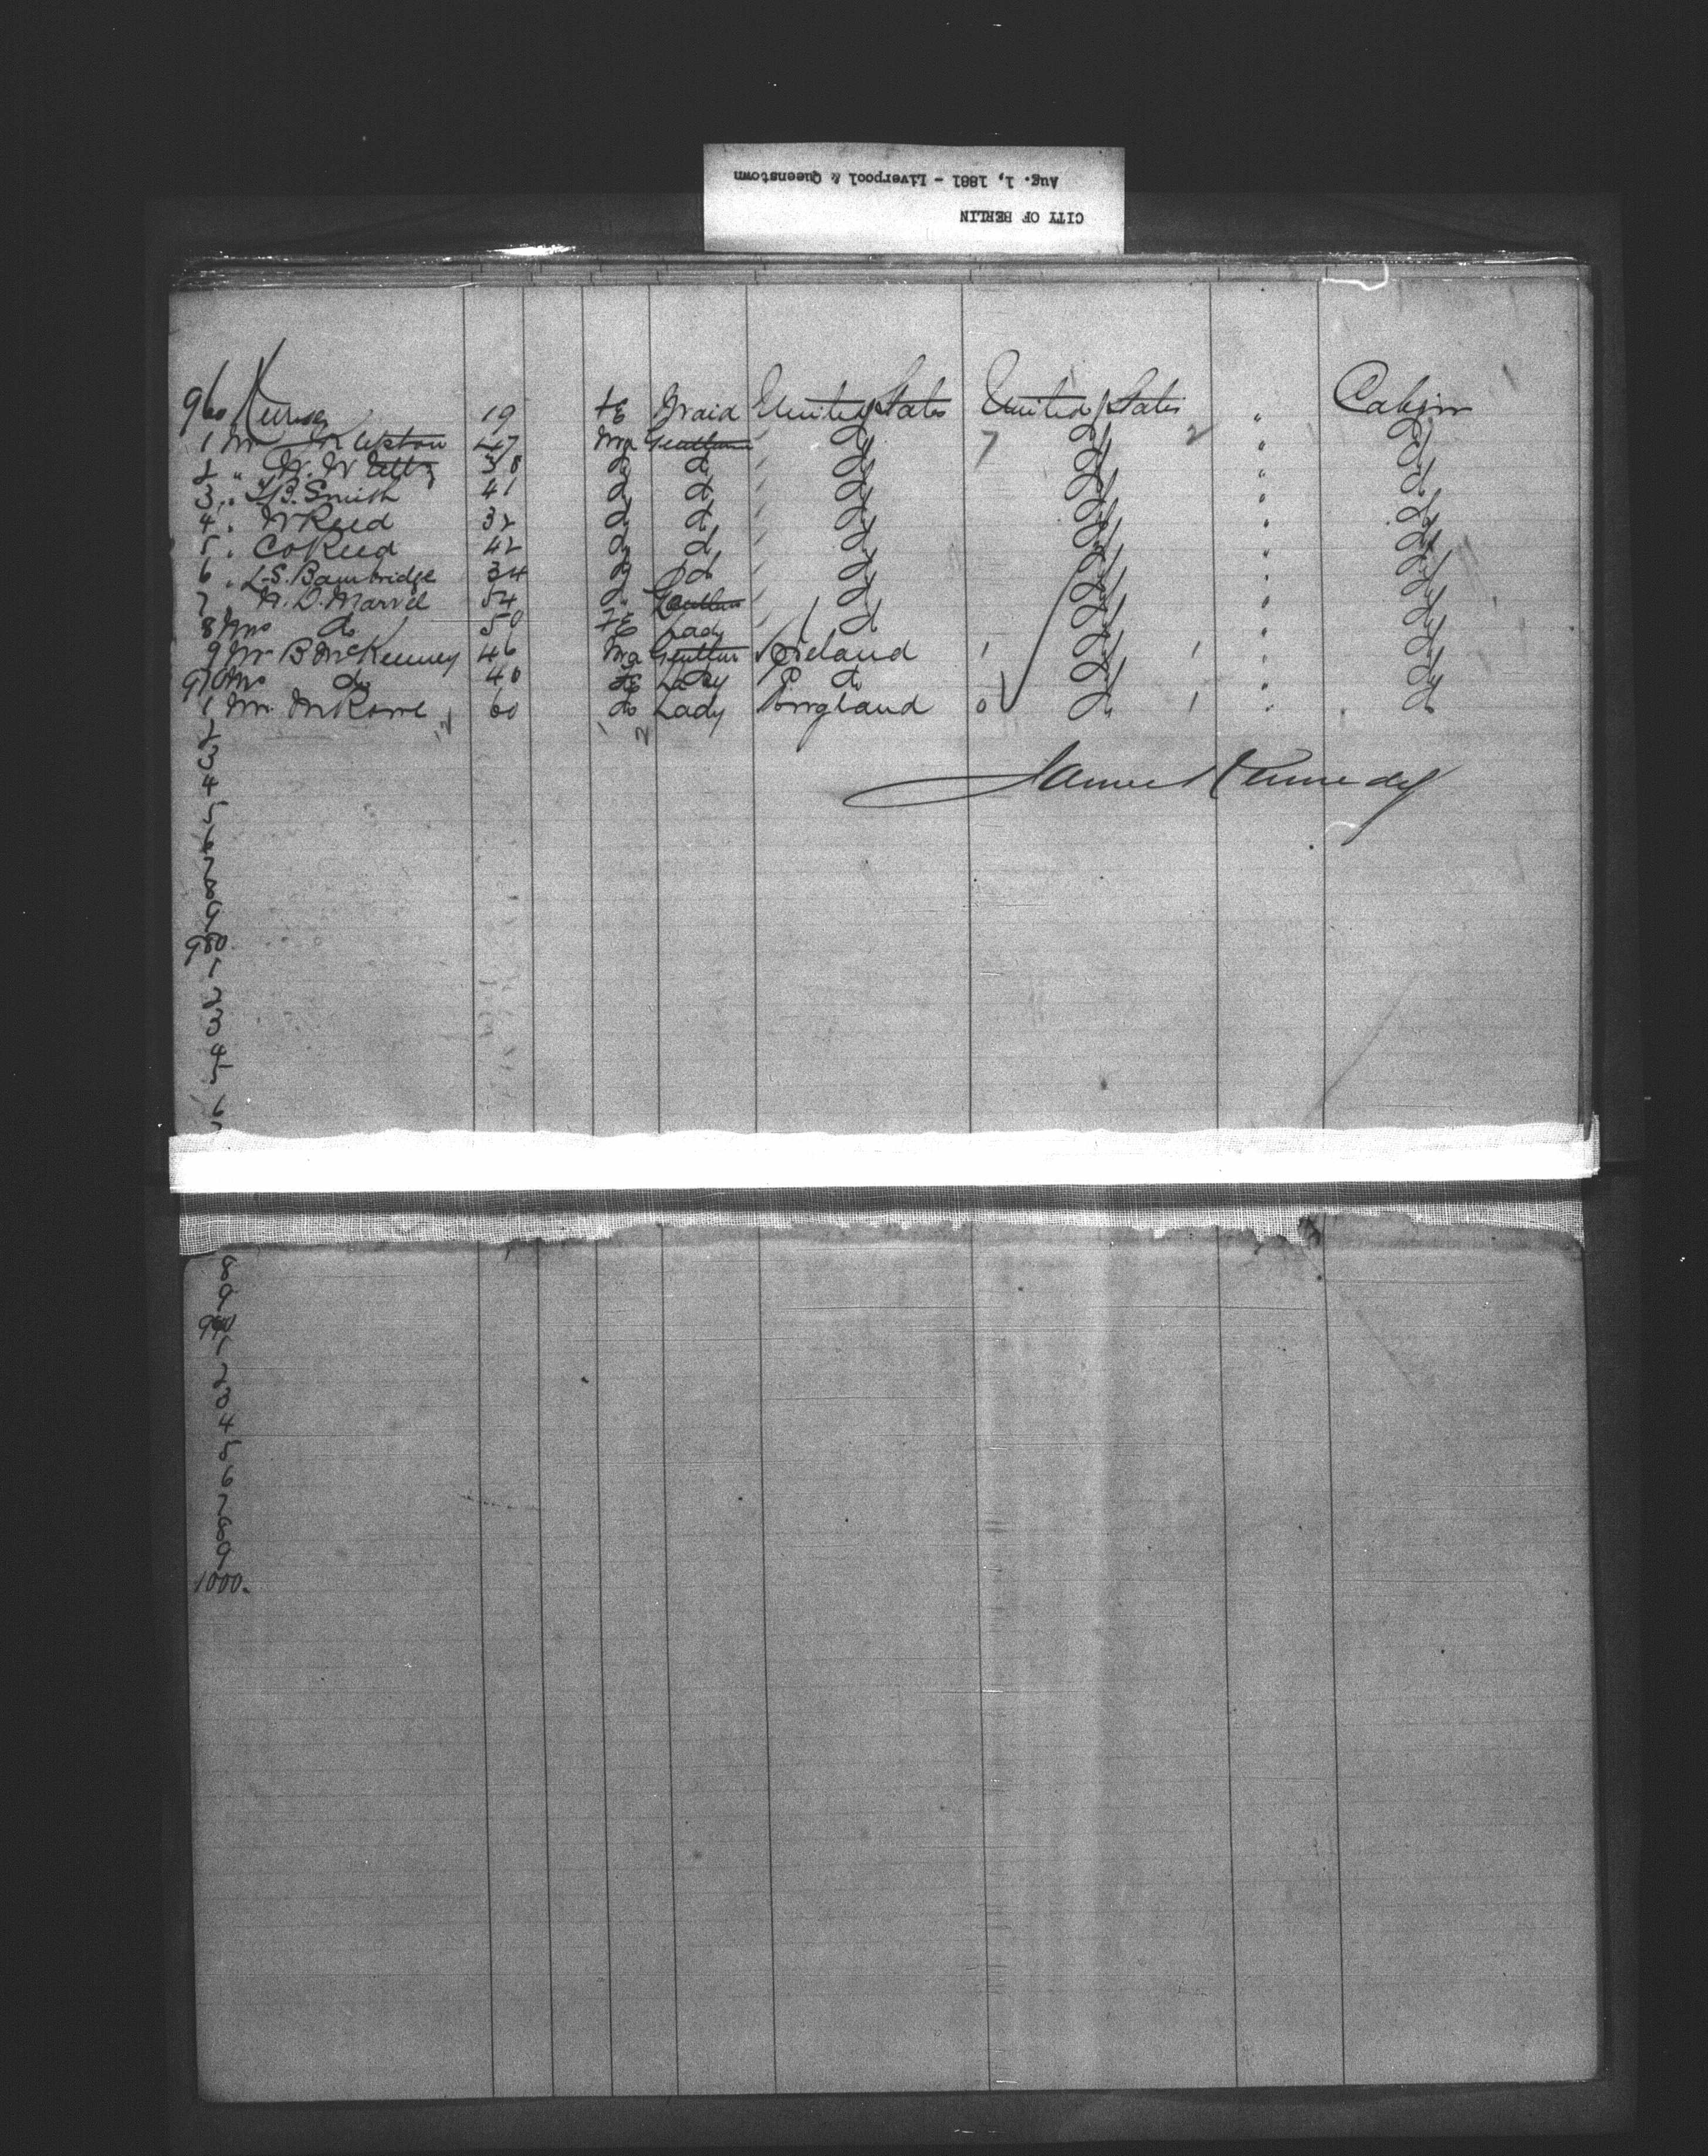 CITY OF BERLIN
Aug. 1, 1881 - Liverpool & Queenstown
960 19 FE Maid United States United States " Cabin
1 Mr 47 Ma Gentleman " do 7 do 2 " do
2 " 38 do do " do do " do
3 " B. Smith 41 do do " do do " do
4 " W Reed 32 do do " do do " do
5 " Co Reed 42 do do " do do " do
6 " L. S. Bambridge 34 do do " do do " do
7 H. D. Marvel 54 do Gentlman " do do " do
8 Mrs do 50 FE Lady do do " do
9 Mr B McKenney 46 Ma Gentlm Ireland 1 do 1 " do
970 Mrs do 40 FE Lady do do " do
1 Mr. M Rowe 60 do Lady England 0 do 1 " do
2
3
4
5
6
7
8
9
980
1
2
3
4
5
6
7
James Kennedy
8
9
990
1
2
3
4
5
6
7
8
9
1000.